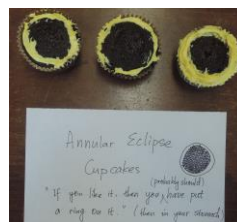 Annular Eclipse
Cupcakes
(probably should)
"If you like it, then you have put
a ring on it." (then in your stomach)